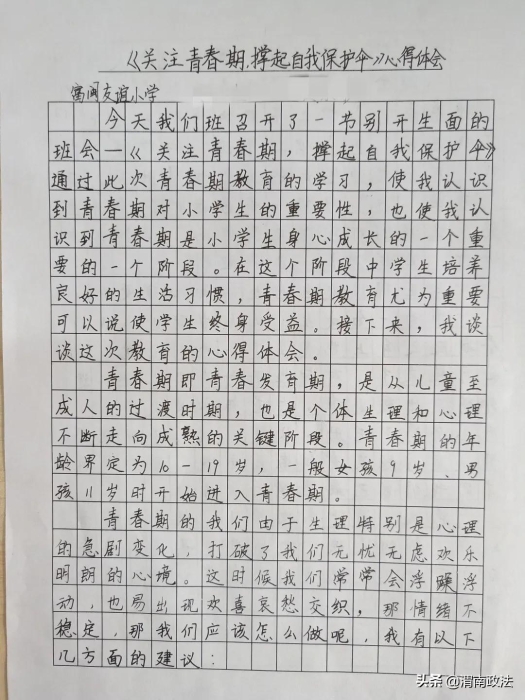 《关注青春期,撑起自我保护伞》心得体会
富闽友谊小学
今天我们班召开了一节别开生面的
班会—《关注青春期,撑起自我保护伞》
通过此次青春期教育的学习,使我认识
到青春期对小学生的重要性,也使我认
识到青春期是小学生身心成长的一个重
要的一个阶段。在这个阶段中学生培养
良好的生活习惯,青春期教育尤为重要
可以说使学生终身受益。接下来,我谈
谈这次教育的心得体会。
青春期即青春发育期,是从儿童至
成人的过渡时期,也是个体生理和心理
不断走向成熟的关键阶段。青春期的年
龄界定为10-19岁,一般女孩9岁、男
孩11岁时开始进入青春期。
青春期的我们由于生理特别是心理
的急剧变化,打破了我们无忧无虑欢乐
明朗的心境。这时候我们常常会浮躁浮
动,也易出现欢喜哀愁交织,那情绪不
稳定,那我们应该怎么做呢,我有以下
几方面的建议:
头条 @渭南政法